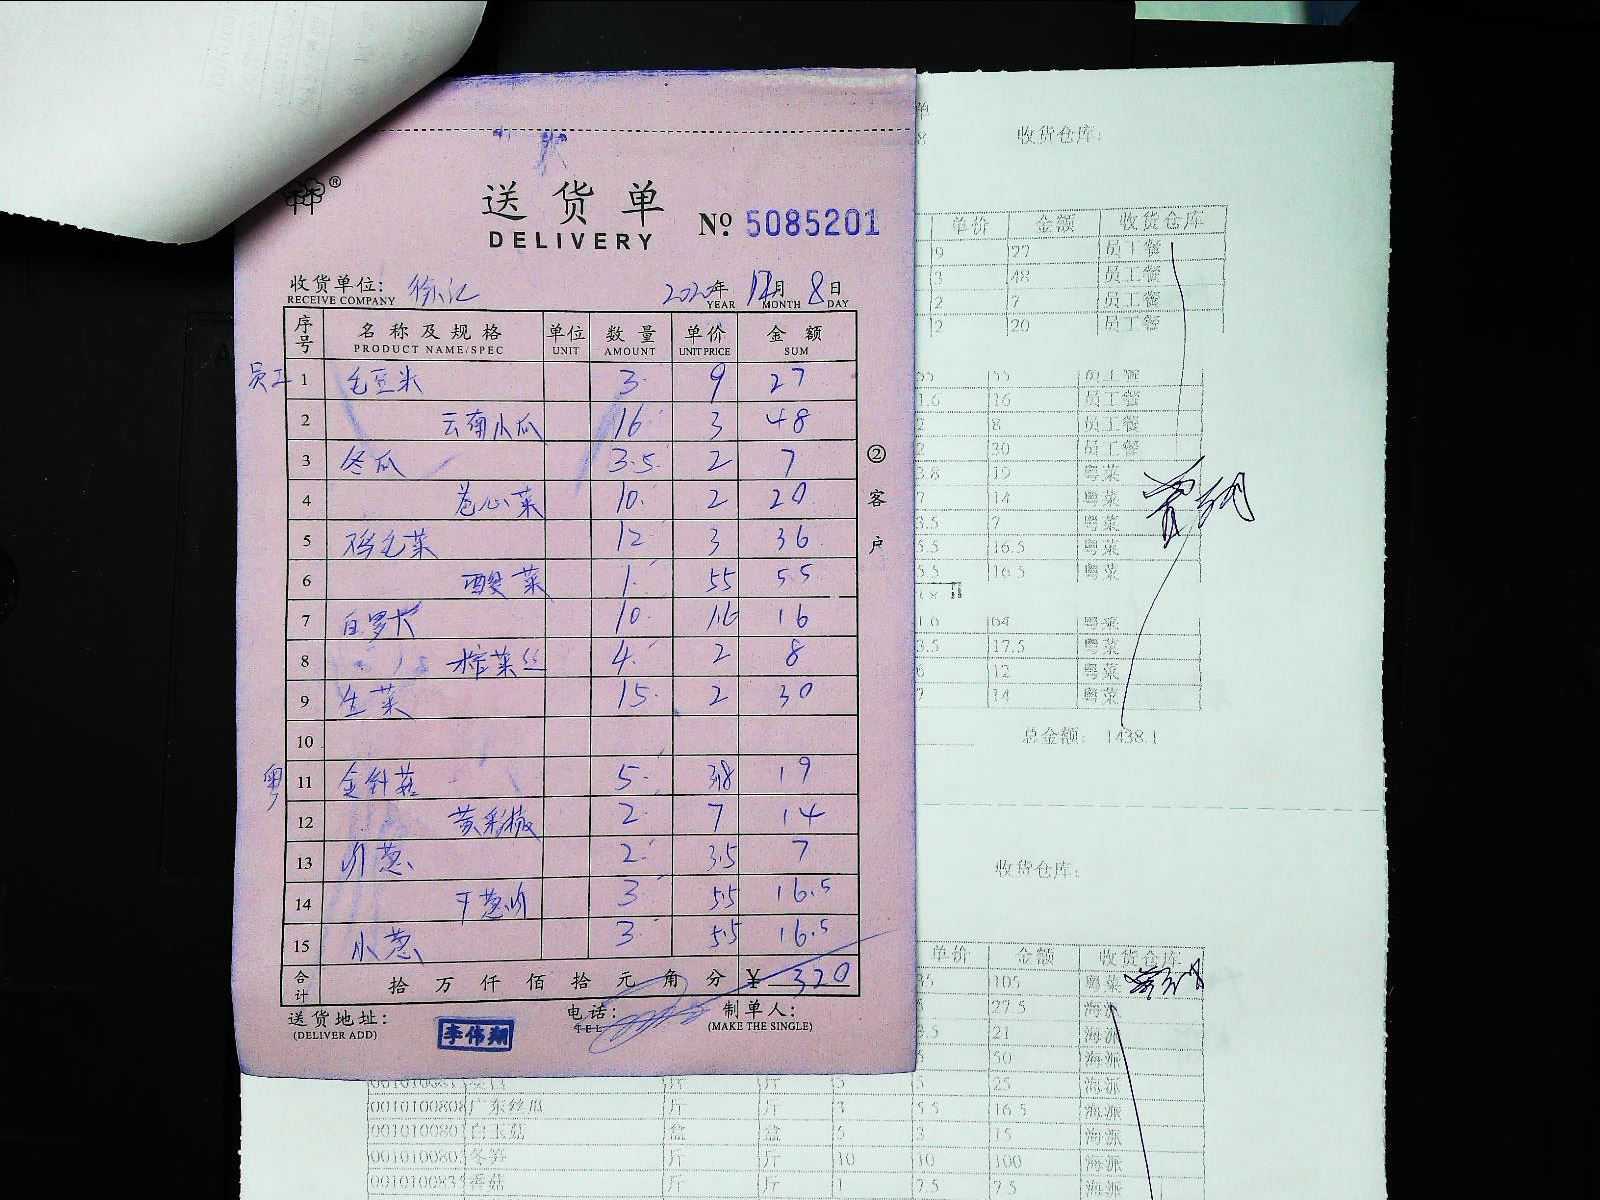 送货单
DELIVERY
№ 5085201
收货单位: 徐汇 2020年 12月 8日
RECEIVE COMPANY YEAR MONTH DAY
序号 名称及规格 单位 数量 单价 金额
PRODUCT NAME/SPEC UNIT AMOUNT UNIT PRICE SUM
员工 1 毛豆米 3 9 27
2 云南小瓜 16 3 48
3 冬瓜 3.5 2 7
4 卷心菜 10 2 20
5 鸡毛菜 12 3 36
6 酸菜 1 55 55
7 白罗卜 10 1.6 16
8 榨菜丝 4 2 8
9 生菜 15 2 30
10
粤 11 金针菇 5 3.8 19
12 黄彩椒 2 7 14
13 川葱 2 3.5 7
14 干葱肉 3 5.5 16.5
15 小葱 3 5.5 16.5
合计 拾万仟佰拾元角分 ¥ 320
送货地址: 电话: 制单人:
(DELIVER ADD) TEL (MAKE THE SINGLE)
李伟翔
②客户
单
收货仓库:
单价 金额 收货仓库
9 27 员工餐
3 48 员工餐
2 7 员工餐
2 20 员工餐
55 55 员工餐
1.6 16 员工餐
2 8 员工餐
2 30 员工餐
3.8 19 粤菜
7 14 粤菜
3.5 7 粤菜
5.5 16.5 粤菜
5.5 16.5 粤菜
64 粤菜
3.5 17.5 粤菜
6 12 粤菜
7 14 粤菜
总金额: 1438.1
收货仓库:
单价 金额 收货仓库
105 粤菜
27.5 海派
3.5 21 海派
50 海派
5 25 海派
广东丝瓜 斤 斤 3 5.5 16.5 海派
白玉菇 盒 盒 5 3 15 海派
冬笋 斤 斤 10 10 100 海派
香菇 斤 斤 1 7.5 7.5 海派